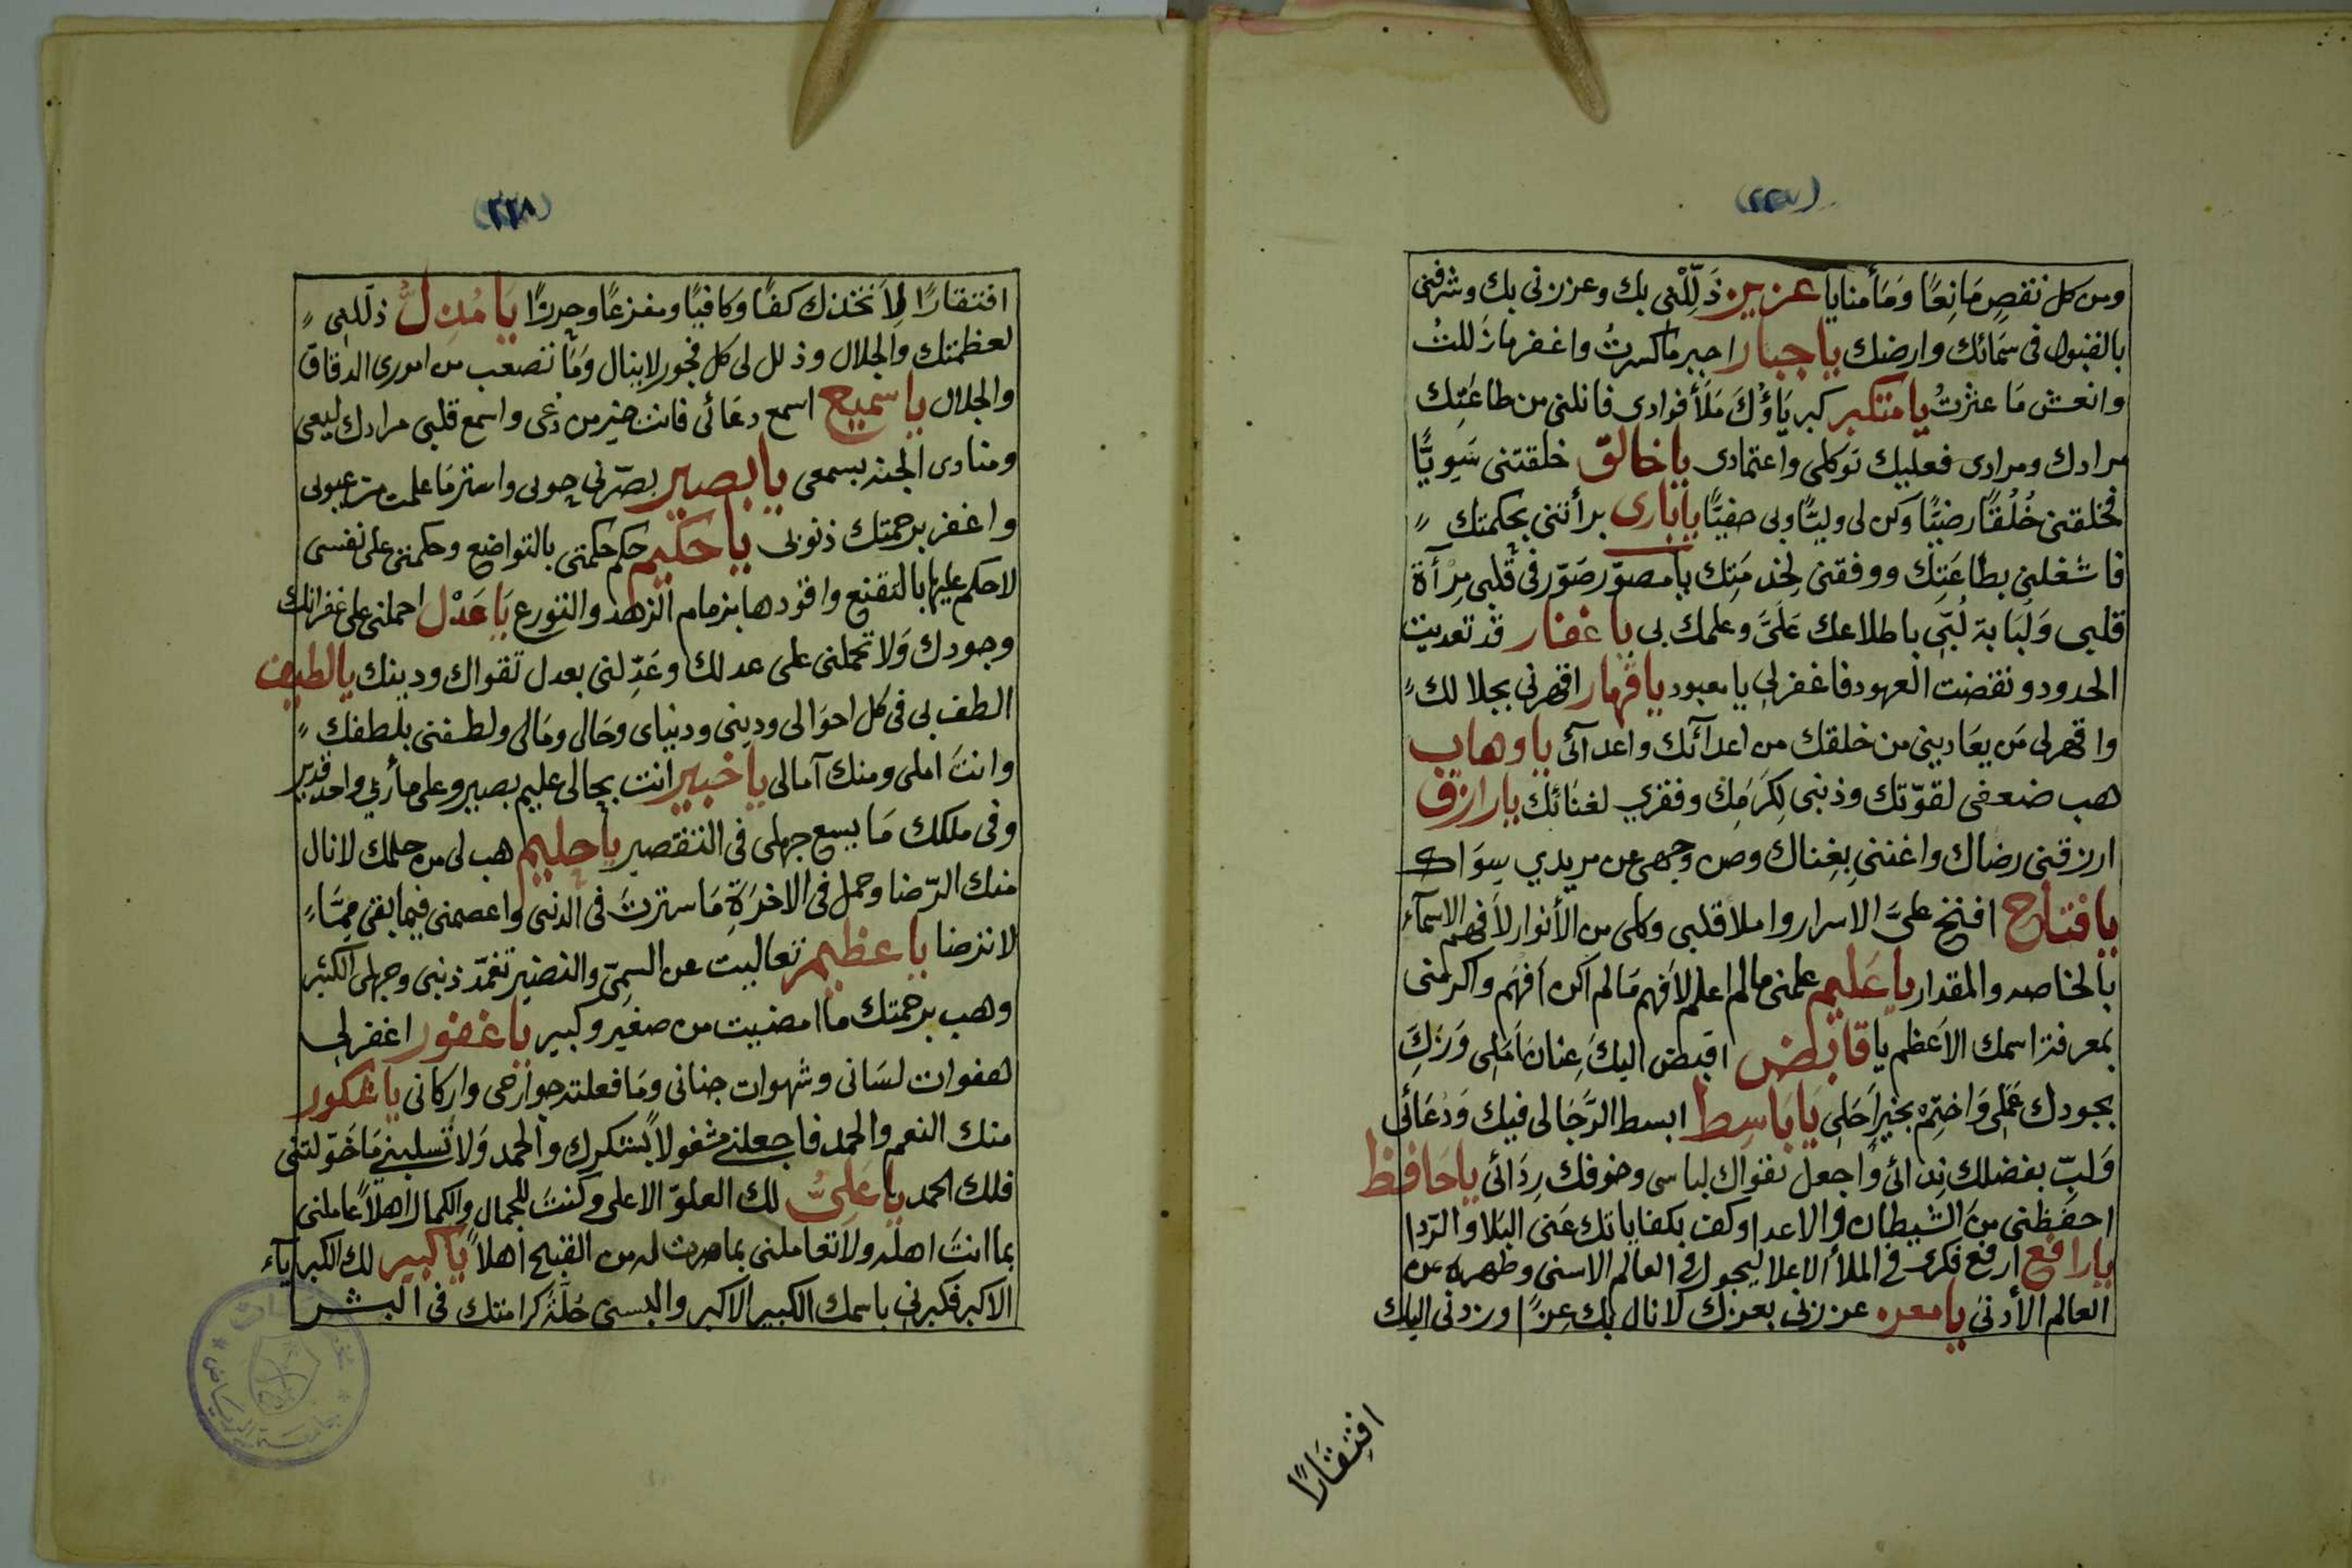 (٢٢٧)
ومن كل نقصٍ مَانِعًا وَمَأمنا يا عزيز ذَلِّلْنِي بك وعززنى بك وشرفنى
بالقبول فى سَمَائك وارضك يا جبار اجبر ما كسرتُ واغفر ما زَللتُ
وانعش مَا عثرْتُ يا متكبر كبريَاؤُكَ مَلَأَ فوادى فانلنى من طاعَتِك
مرادك ومرادى فعليك توكلى واعتمادى يا خالقّ خلقتنى سَوِيًّا
فخلقنى خُلُقًا رضيًّا وكن لى وليًّا وبى حفيًّا يا بَارى برأتنى بحكمتك
فاشغلنى بطاعَتِك ووفقنى لِخدمَتِك يا مصوّر صَوّر فى قلبى مِرْآة
قلبى وَلُبَابة لُبِّى باطلاعك عَلَىَّ وعلمك بى يا غفار قد تعديت
الحدود ونقضت العهود فاغفرلى يا معبود يا قهار اقهرنى بجلالك
واقهرلى مَن يعَادينى من خلقك من اعدآئك واعدآئى يا وهاب
هب ضعفى لقوّتك وذنبى لِكَرَمِك وفقري لغنائك يا رازق
ارزقنى رضاك واغننى بِغِناك وصن وجهى عن مريدي سِوَاك
يا فتاح افتح علىَّ الاسرار واملا قلبى وكلى من الأنوار لأفهم الاسمآء
بالخاصه والمقدار يا عَليم علمنى مالم اعلم لأفهم مَالم اكن افهَم واكرمنى
بمعرفة اسمك الاَعظم يا قابض اقبض اليكَ عِنان اَمَلِى وَزَكِّ
بجودك عَمَلِى وَاختِم بخير اَجَلِى يَا بَاسِط ابسط الرَّجَا لى فيك وَدُعَائى
وَلبِّ بفضلك نِدائى وَاجعل تقواك لباسى وخوفك رِدَائى يا حَافِظ
احفظنى مِنَ الشيطان والاعدا وكف بكفاياتك عَنى البَلا والرّدا
يا رافع ارفع فكرى فى الملأ الاعلا ليجول فى العالم الاسنى وظهره عن
العالم الأدنىَ يا معزه عززنى بعزك لانال بك عِزًّا وزدنى اليك
افتِقَارًا
(٢٢٨)
افتقارًا لِاَتخذك كفًا وَكافيًا ومفزعًا وحرزًا يَا مُذِلُّ ذلّلنِى
لعظمتك والجلال وذلل لى كل فجور لاينال وَمَا تصعب من امورى الدقاق
والجلال يا سميع اسمع دعَائى فانت خير من دُعى واسمع قلبى مرادك ليعى
ومنادى الجنة بسمعى يا بصير بصّرنى حوبى واستر مَا علمت من عيوبى
واغفر برحمتك ذنوبى يا حكيم حكم حكمتى بالتواضع وحكمنى على نفسى
لاحكم عليها بالتقنع واقودها بزمام الزهد والتورع يَا عَدْل احملنى على غفرانك
وجودك وَلا تحملنى على عدلك وعَدِّلنى بعدل تقواك ودينك يا لطيف
الطف بى فى كل احوَالى ودينى ودنياى وحَالى ومَالى ولطفنى بلطفك
وانتَ املى ومنك آمالى يا خبير انت بحالى عليم بصير وعلى مأربي واحد قدير
وفى ملكك مَا يسع جهلى فى التقصير يا حليم هب لى من حلمك لانال
منك الرّضا وحمل فى الاخرَةِ مَا سترتَ فى الدنى واعصمنى فيما بقى مِمَّا
لا ترضا يا عظيم تعاليت عن السمىّ والنضير تغمّد ذنبى وجهلى الكثير
وهب برحمتك ما امضيت من صغير وكبير يا غفور اغفرلى
هفوات لسَانى وشهوات جنانى ومَا فعلته جوارحى واركانى يا شكور
منك النعم والحمد فاجعلنى مشغولاً بشكرك والحمد وَلا تسلبنى مَا خَوّلتنى
فلك الحمد يا عَلِىُّ لك العلوّ الاعلى وكنتَ للجمال والكمال اهلاً عاملنى
بما انتَ اهله ولا تعاملنى بما صرت له من القبح أهلاً يا كبير لك الكبريآء
الاكبر فكبرنى باسمك الكبير الاكبر والبسنى حُلّة كرامتك فى البشر